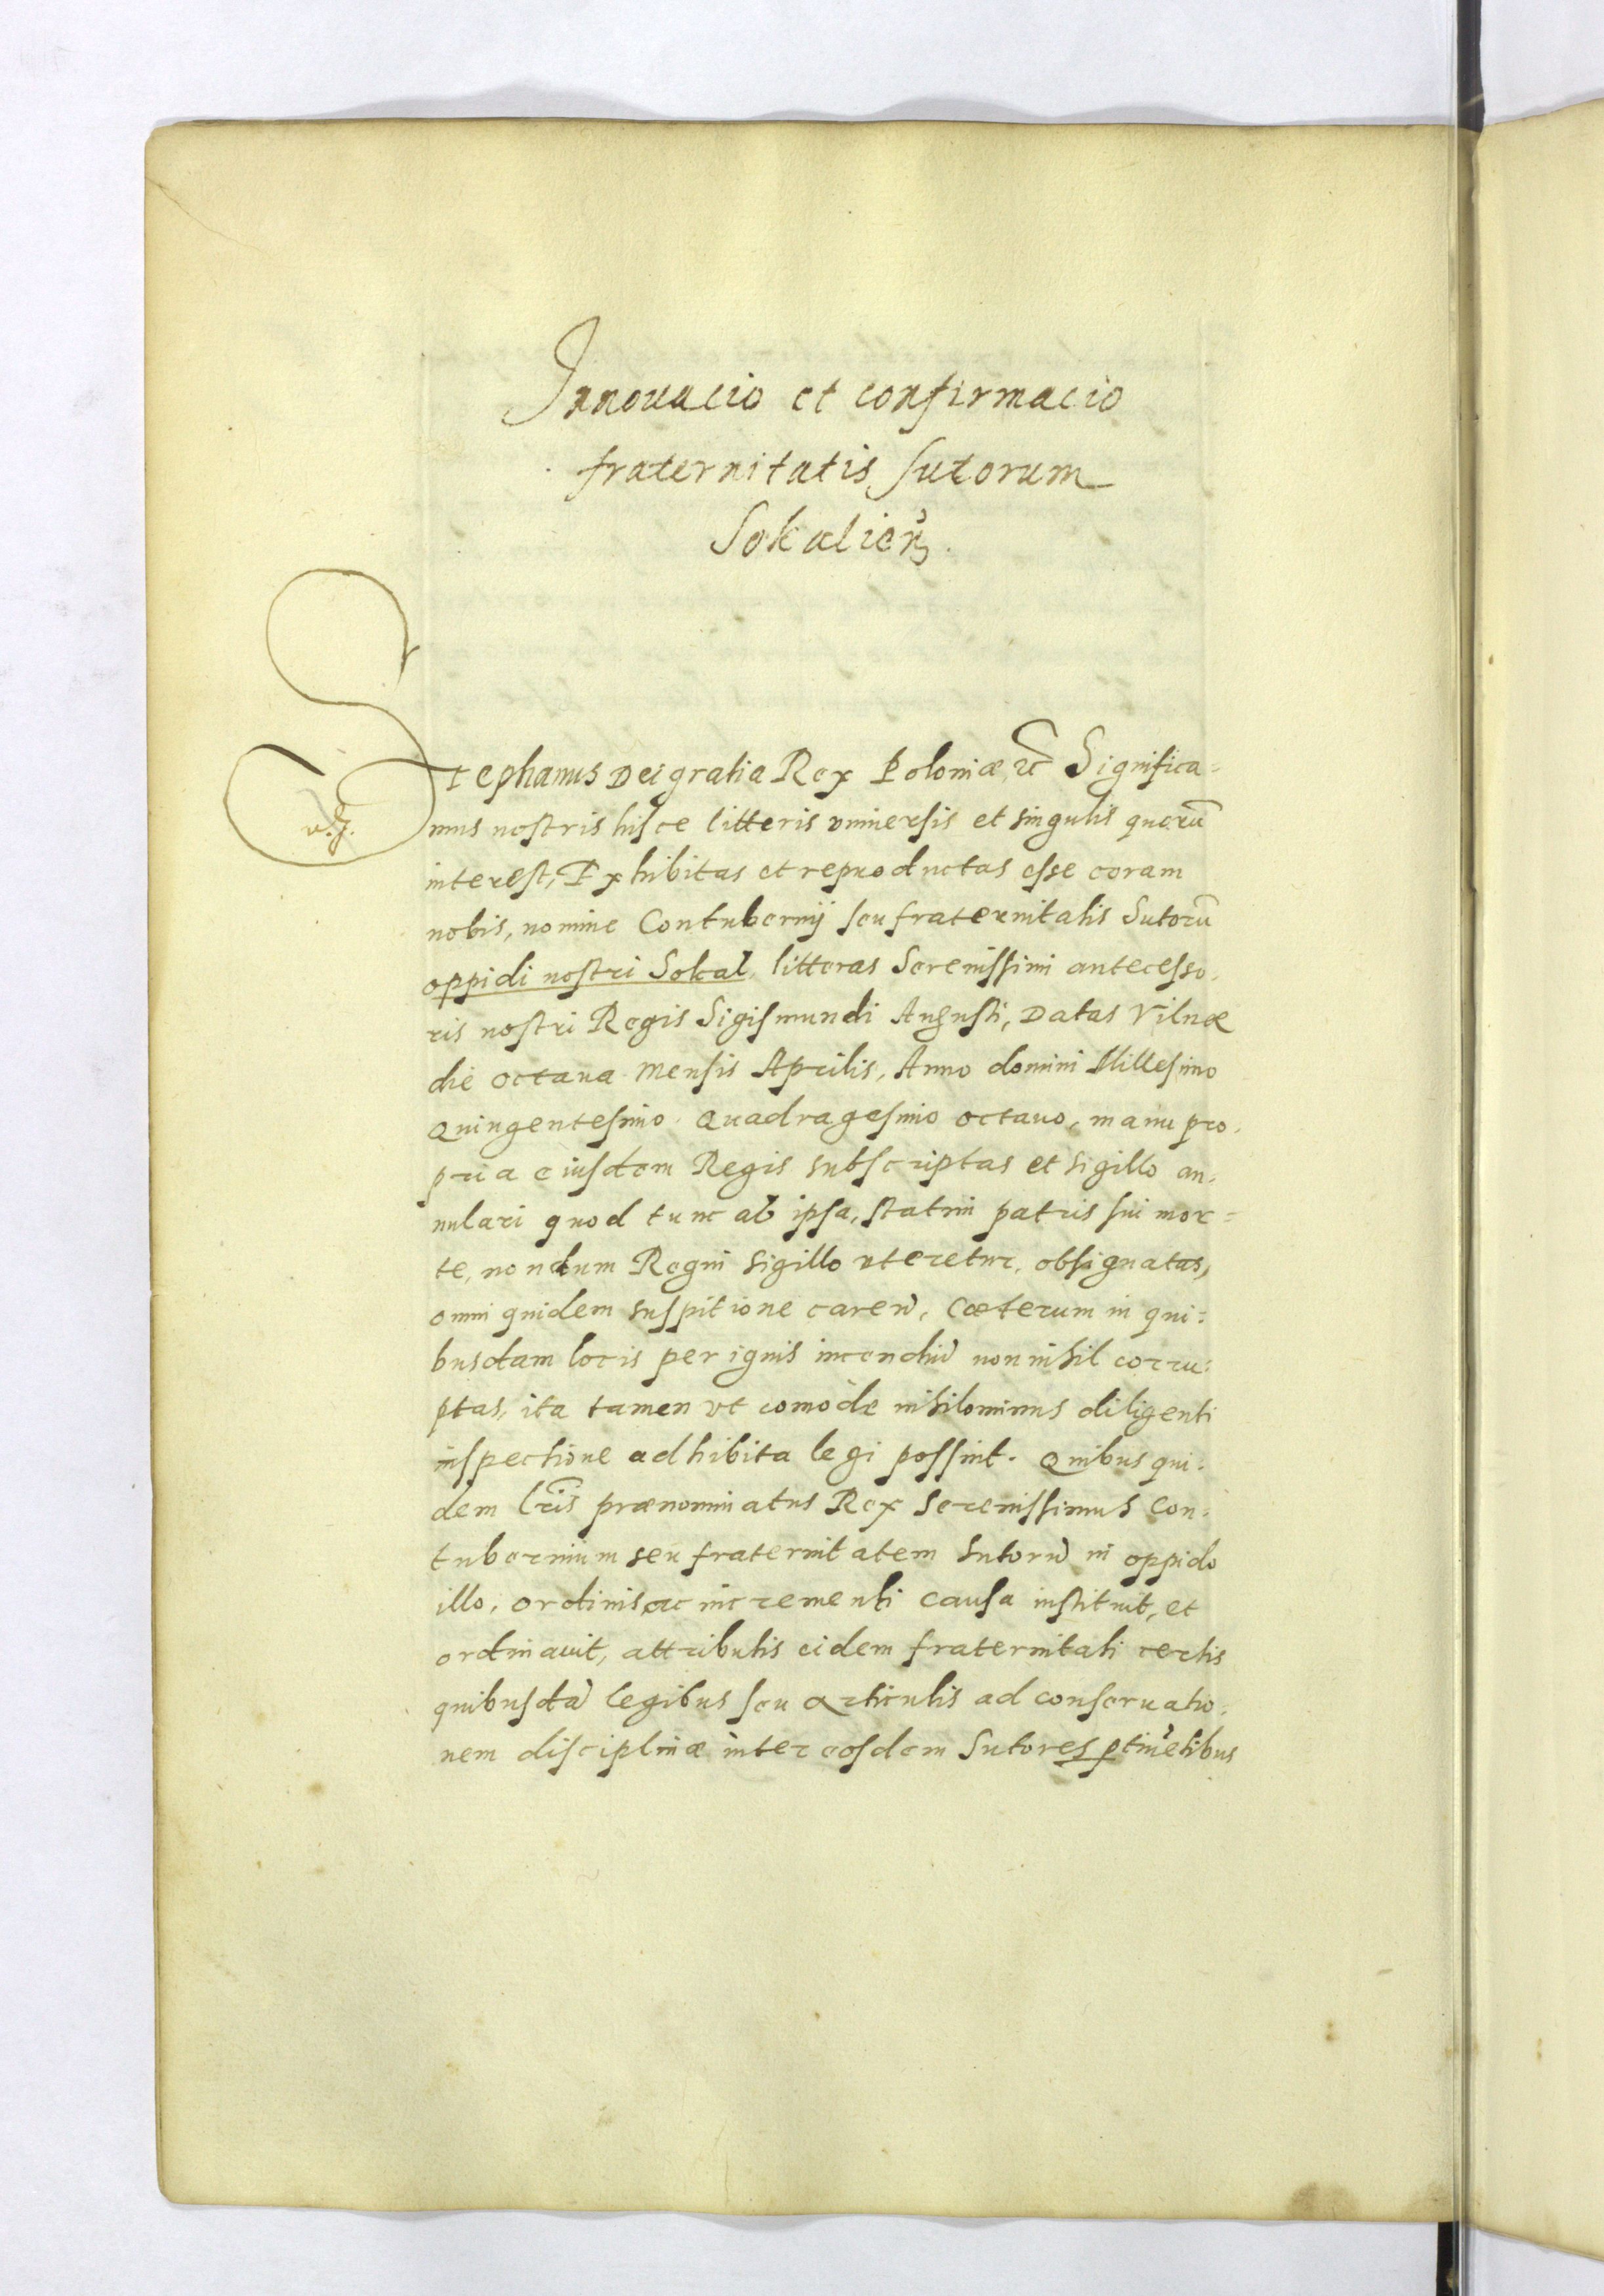 Innouacio et confirmacio
fraternitatis Sutorum
Sokalieñ.
Stephanus Dei gratia Rex Poloniæ, &c Significa=
mus nostris hisce litteris vniuersis et singulis quorũ
interest, Exhibitas et reproductas esse coram
nobis, nomine Contubernij seu fraternitatis Sutorũ
oppidi nostri Sokal, litteras Serenissimi antecesso.
ris nostri Regis Sigismundi Augusti, Datas Vilnæ
die octaua Mensis Aprilis, Anno domini Millesimo
Quingentesimo Quadragesimo octauo, manu pro.
pria eiusdem Regis subscriptas et sigillo an.
nulari quod tunc ab ipsa, statim patris sui mor=
te, nondum Regni sigillo vteretur, obsignatas,
omni quidem suspitione caren̄, Cæterum in qui:
busdam locis per ignis incendiũ non nihil corru:
ptas, ita tamen vt comodè nihilominus diligenti
inspectione adhibita legi possint. Quibus qui.
dem l̃ris prænominatus Rex Serenissimus Con.
tubernium seu fraternitatem Sutorũ in oppido
illo, ordinis ac incrementi causa instituit, et
ordinauit, attributis eidem fraternitati certis
quibusdã legibus seu articulis ad conseruatio.
nem disciplinæ inter eosdem Sutores ptinẽtibus